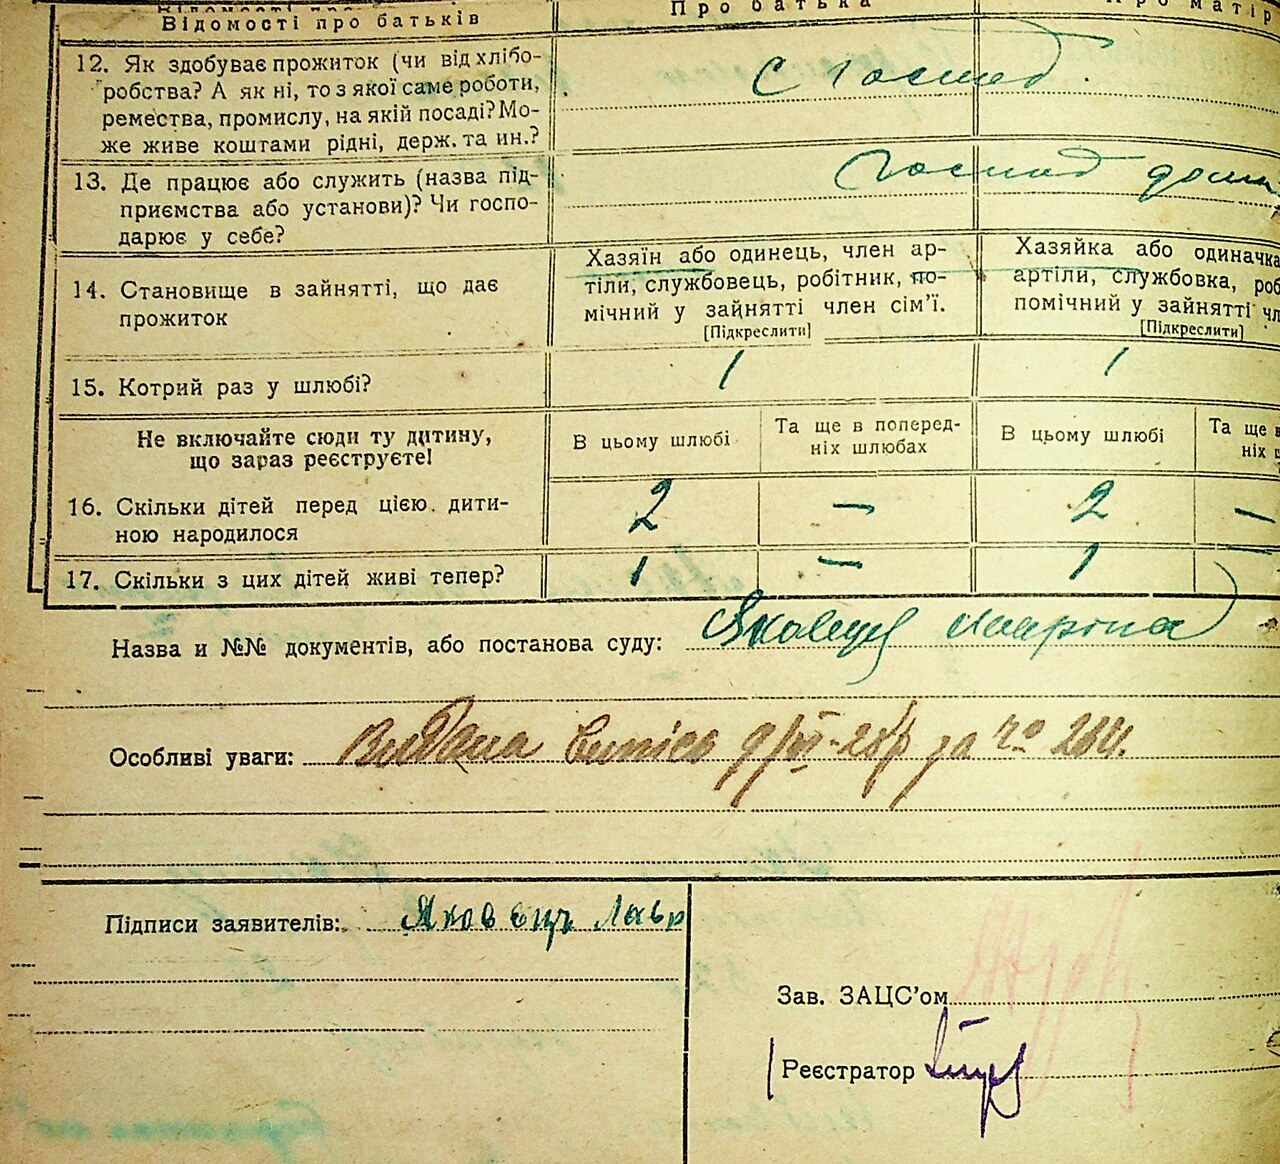 Відомості про батьків
Про батька
Про матір
12. Як здобуває прожиток (чи від хлібо-
робства? А як ні, то з якої саме роботи,
ремества, промислу, на якій посаді? Мо-
же живе коштами рідні, держ. та ин.?
13. Де працює або служить (назва під-
приємства або установи)? Чи госпо-
дарює у себе?
14. Становище в зайнятті, що дає
прожиток
Хазяїн або одинець, член ар-
тіли, службовець, робітник, по-
мічний у зайнятті член сім'ї.
[Підкреслити]
Хазяйка або одиначка
артіли, службовка, роб
помічний у зайнятті чл
[Підкреслити]
15. Котрий раз у шлюбі?
1
1
Не включайте сюди ту дитину,
що зараз реєструєте!
В цьому шлюбі
Та ще в поперед-
ніх шлюбах
В цьому шлюбі
Та ще в
ніх
16. Скільки дітей перед цією дити-
ною народилося
2
—
2
—
17. Скільки з цих дітей живі тепер?
1
—
1
Назва и №№ документів, або постанова суду:
Особливі уваги:
Підписи заявителів: Яковець Лавр
Зав. ЗАЦС'ом
Реєстратор